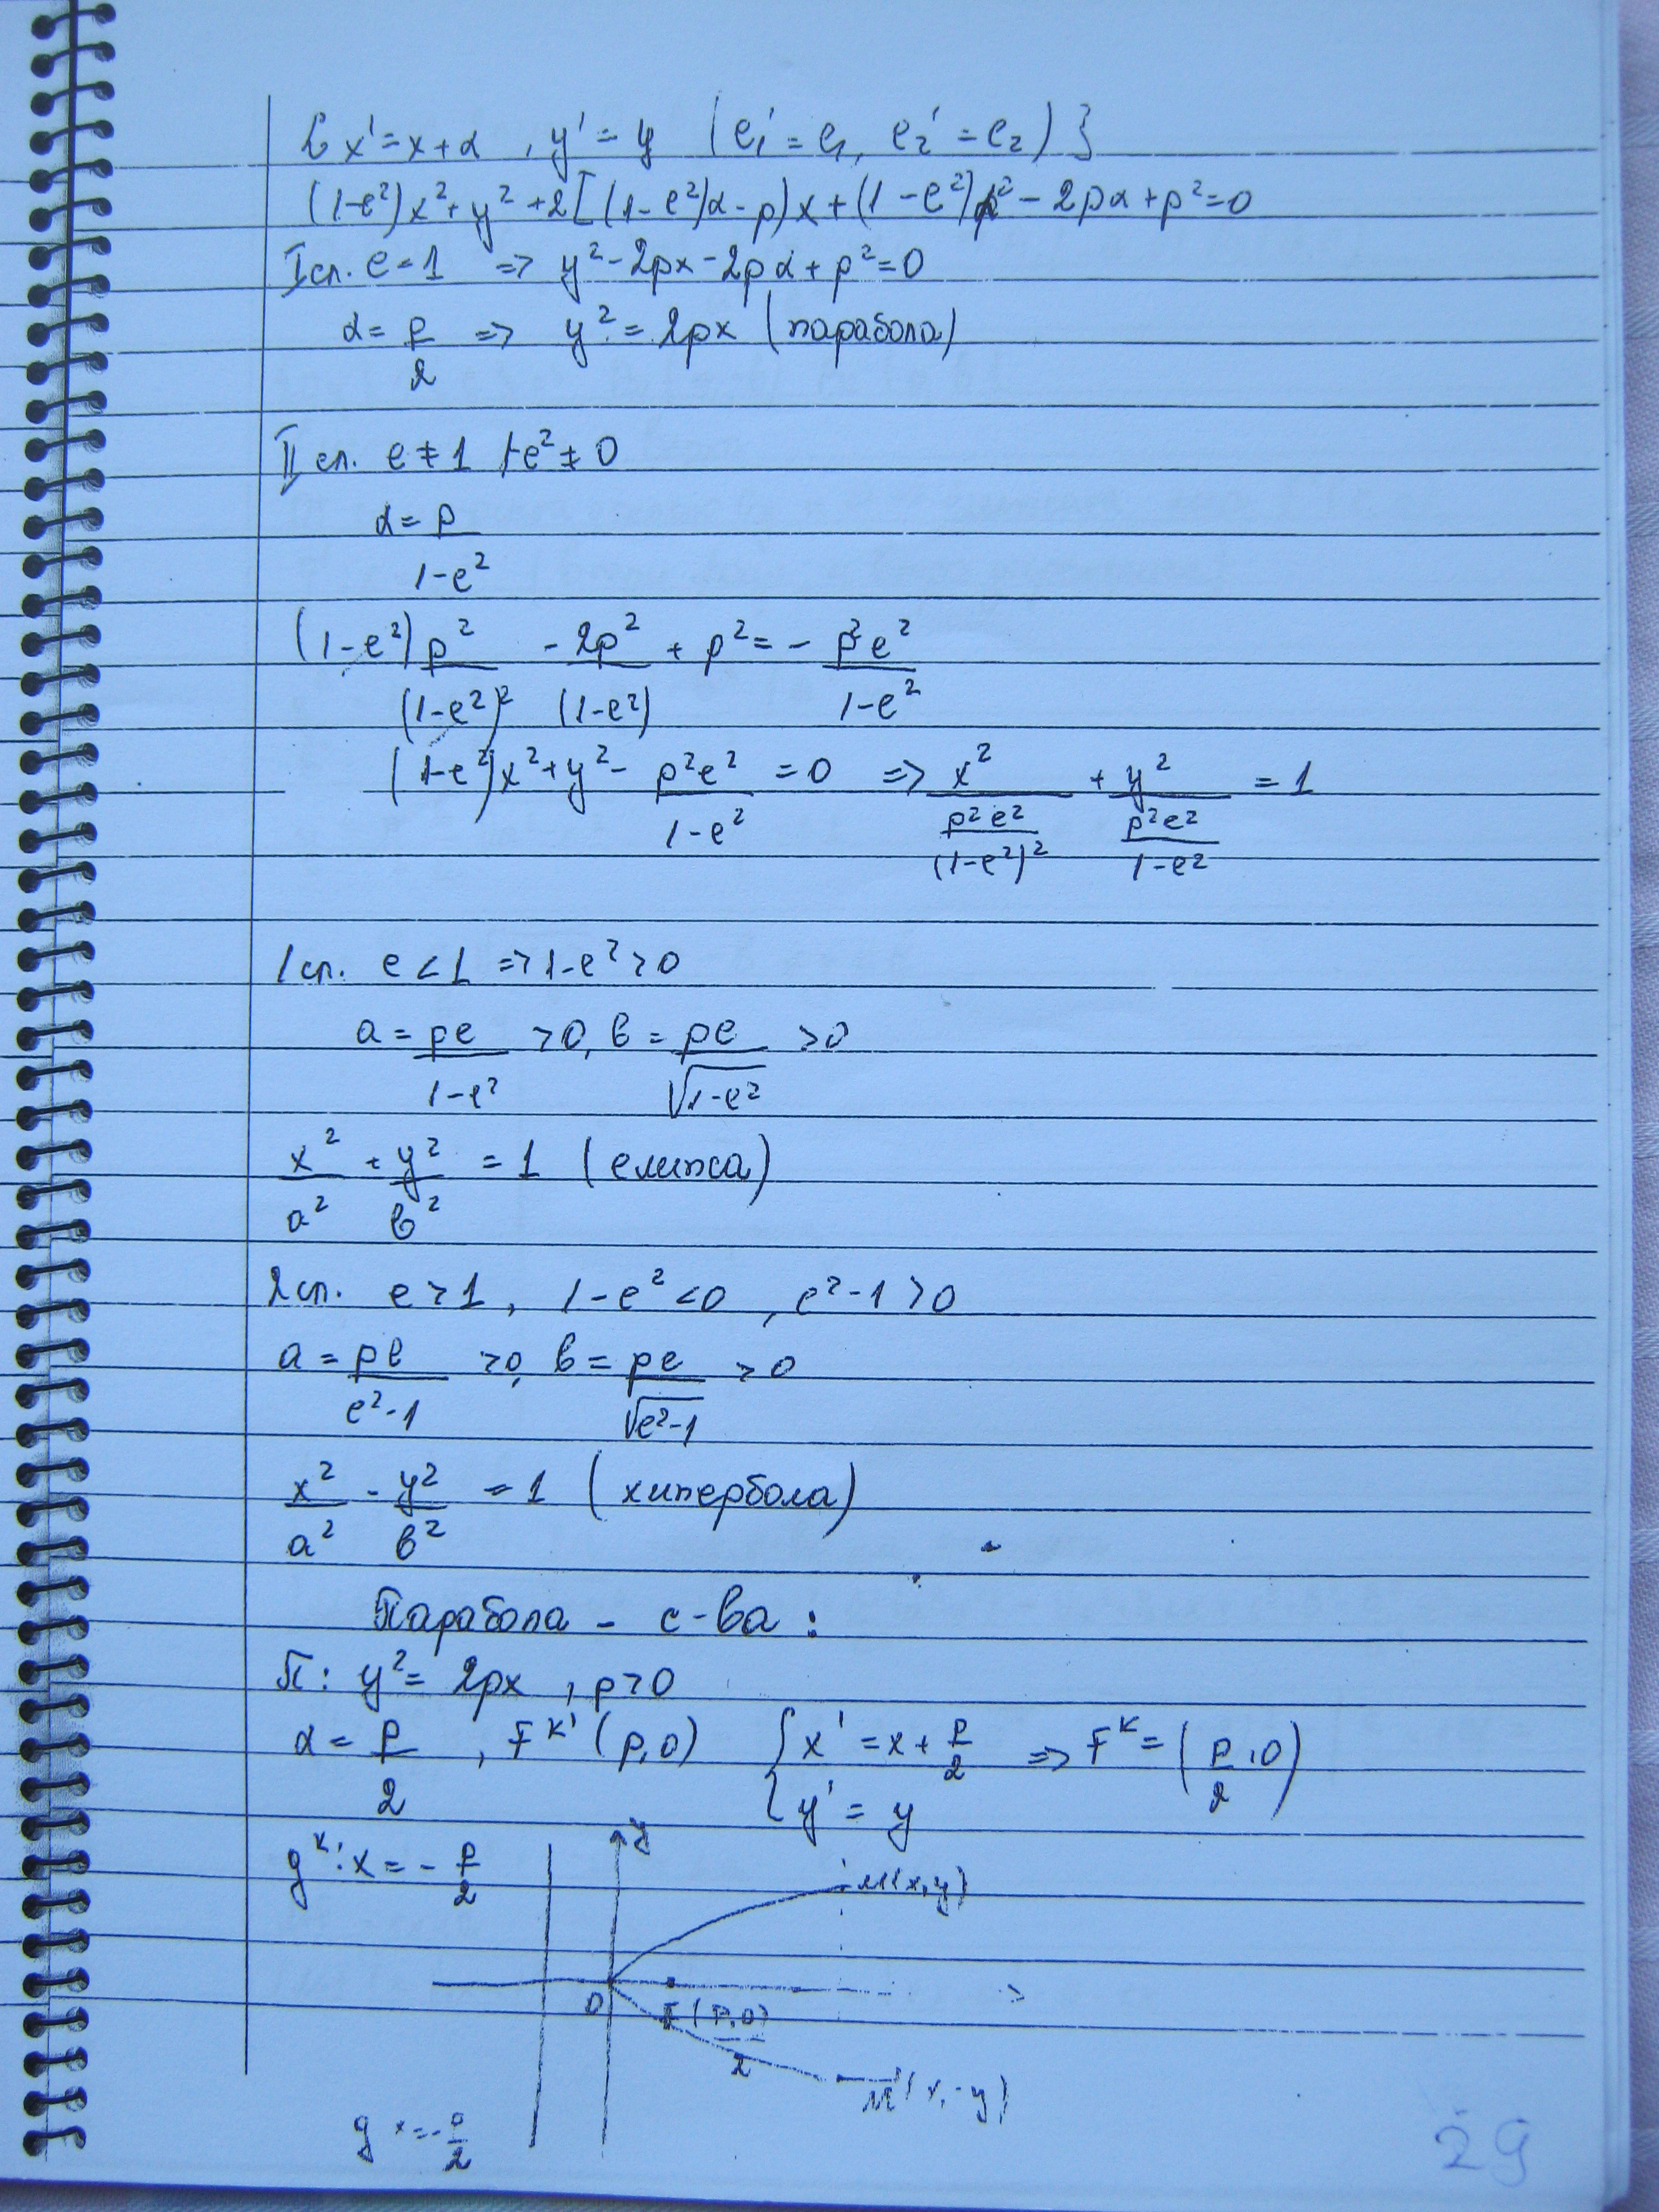 { x' = x + α , y' = y (e₁' = e₁, e₂' = e₂) }
(1-e²)x² + y² + 2[(1-e²)α - p)x + (1-e²)α² - 2pα + p² = 0
I сл. e = 1 => y² - 2px - 2pα + p² = 0
α = p/2 => y² = 2px (парабола)
II сл. e ≠ 1 1-e² ≠ 0
α = p/(1-e²)
(1-e²) p²/(1-e²)² - 2p²/(1-e²) + p² = - p²e²/(1-e²)
(1-e²)x² + y² - p²e²/(1-e²) = 0 => x²/(p²e²/(1-e²)²) + y²/(p²e²/(1-e²)) = 1
1 сл. e < 1 => 1-e² > 0
a = pe/(1-e²) > 0, в = pe/√(1-e²) > 0
x²/a² + y²/в² = 1 (елипса)
2 сл. e > 1, 1-e² < 0, e²-1 > 0
a = pe/(e²-1) > 0, в = pe/√(e²-1) > 0
x²/a² - y²/в² = 1 (хипербола)
Парабола - с-ва:
П: y² = 2px, p > 0
α = p/2, F^K' (p,0) { x' = x + p/2 => F^K = (p/2, 0)
{ y' = y
g^K: x = - p/2
M(x,y)
O
F(p/2, 0)
M'(x,-y)
g x = - p/2
29